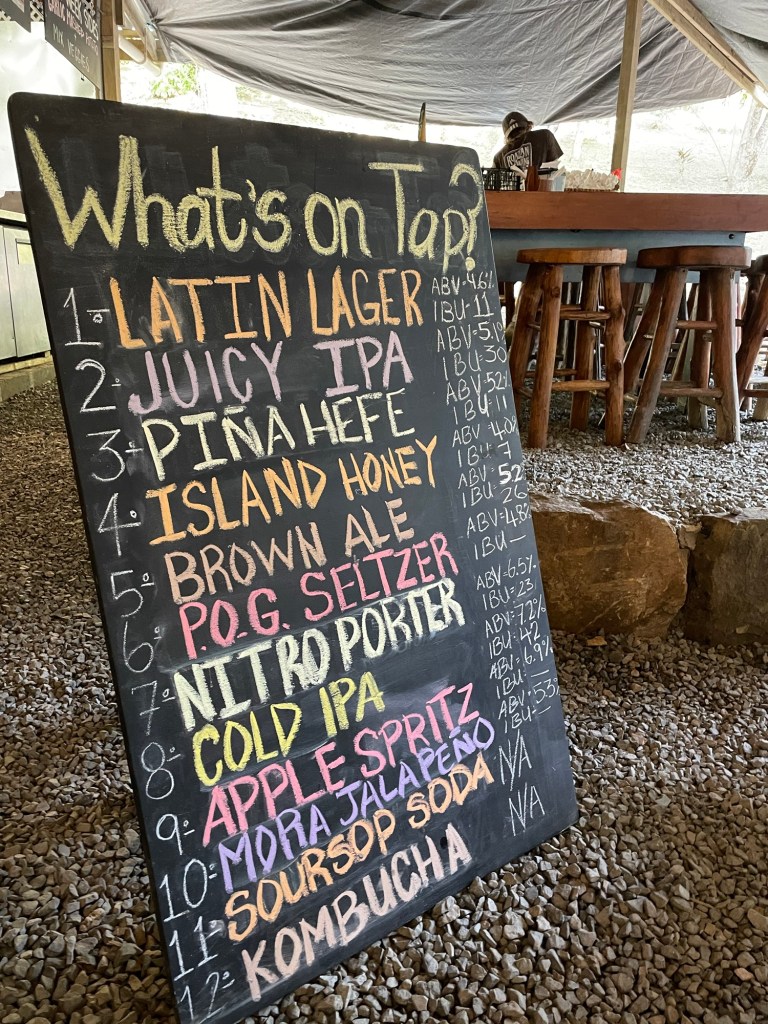 MIX VEGGIES
What's on Tap?
1- LATIN LAGER ABV-4.6% IBU-11
2- JUICY IPA ABV=5.1% IBU:30
3- PIÑA HEFE ABV=5.2% IBU=11
4- ISLAND HONEY ABV: IBU: 7
5- BROWN ALE ABV: 5.2 IBU: 26
6- P.O.G. SELTZER ABV=4.8% IBU—
7- NITRO PORTER ABV=6.5% IBU:23
8- COLD IPA ABV=7.2% IBU: 42
9- APPLE SPRITZ ABV=6.9% IBU: —
10- MORA JALAPEÑO ABV= IBU: —
11- SOURSOP SODA N/A
12- KOMBUCHA N/A